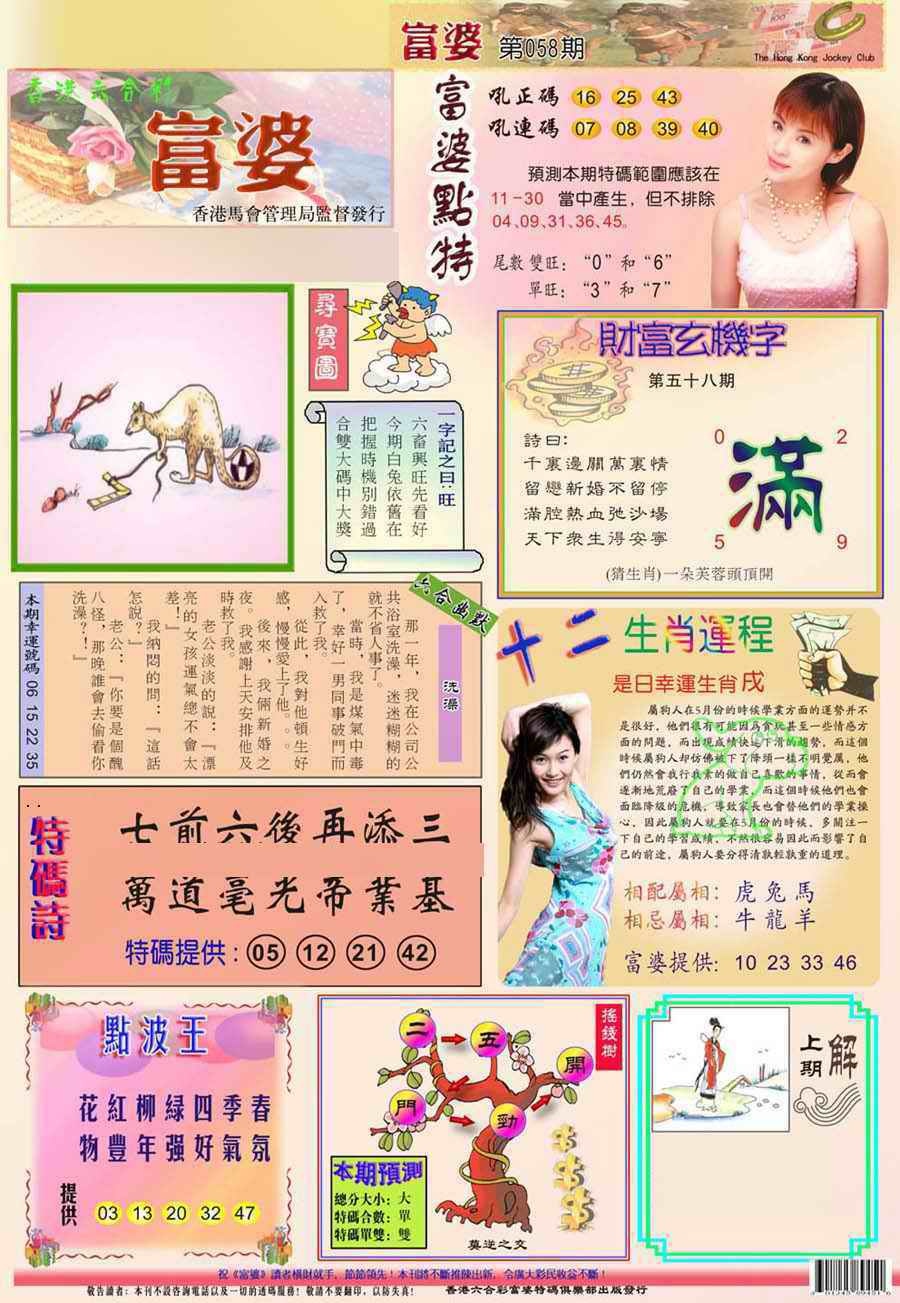 富婆 第058期
The Hong Kong Jockey Club
香港六合彩
富婆
香港馬會管理局監督發行
富婆點特
吼正碼 16 25 43
吼連碼 07 08 39 40
預測本期特碼範圍應該在
11-30 當中產生，但不排除
04、09、31、36、45。
尾數雙旺：“0”和“6”
單旺：“3”和“7”
尋寶圖
一字記之曰：旺
六畜興旺先看好
今期白兔依舊在
把握時機別錯過
合雙大碼中大獎
財富玄機字
第五十八期
詩曰：
千裏邊關萬裏情
留戀新婚不留停
滿腔熱血弛沙場
天下衆生得安寧
0 2
滿
5 9
(猜生肖)一朵芙蓉頭頂開
六合幽默
洗澡
那一年，我在公司公
共浴室洗澡，迷迷糊糊的
就不省人事了。
當時，我是煤氣中毒
了，幸好一男同事破門而
入救了我。
從此，我對他頓生好
感，慢慢愛上了他。。。
後來，我倆新婚之
夜。我感謝上天安排他及
時救了我。
老公淡淡的說：『漂
亮的女孩運氣總不會太
差！』
我納悶的問：『這話
怎說？』
老公：『你要是個醜
八怪，那晚誰會去偷看你
洗澡？！』
本期幸運號碼 06 15 22 35
十二生肖運程
是日幸運生肖戌
屬狗人在5月份的時候學業方面的運勢并不
是很好，他們很有可能因爲貪玩甚至一些情感方
面的問題，而出現成績快速下滑的趨勢，而這個
時候屬狗人却仿佛被下了降頭一樣不明覺厲，他
們仍然會我行我素的做自己喜歡的事情，從而會
逐漸地荒廢了自己的學業，而這個時候他們也會
面臨降級的危機，導致家長也會替他們的學業操
心，因此屬狗人就要在5月份的時候，多關注一
下自己的學習成績，不然很容易因此而影響了自
己的前途，屬狗人要分得清孰輕孰重的道理。
相配屬相：虎兔馬
相忌屬相：牛龍羊
富婆提供：10 23 33 46
特碼詩
七前六後再添三
萬道毫光帝業基
特碼提供：05 12 21 42
點波王
花紅柳綠四季春
物豐年强好氣氛
提供 03 13 20 32 47
搖錢樹
二 五
開
門
勁
本期預測
總分大小：大
特碼合數：單
特碼單雙：雙
莫逆之交
上期解
祝《富婆》讀者橫財就手，節節領先！本刊將不斷推陳出新，令廣大彩民收益不斷！
敬告讀者：本刊不設咨詢電話以及一切的透碼服務！敬請不要翻印，以防失真！
香港六合彩富婆特碼俱樂部出版發行